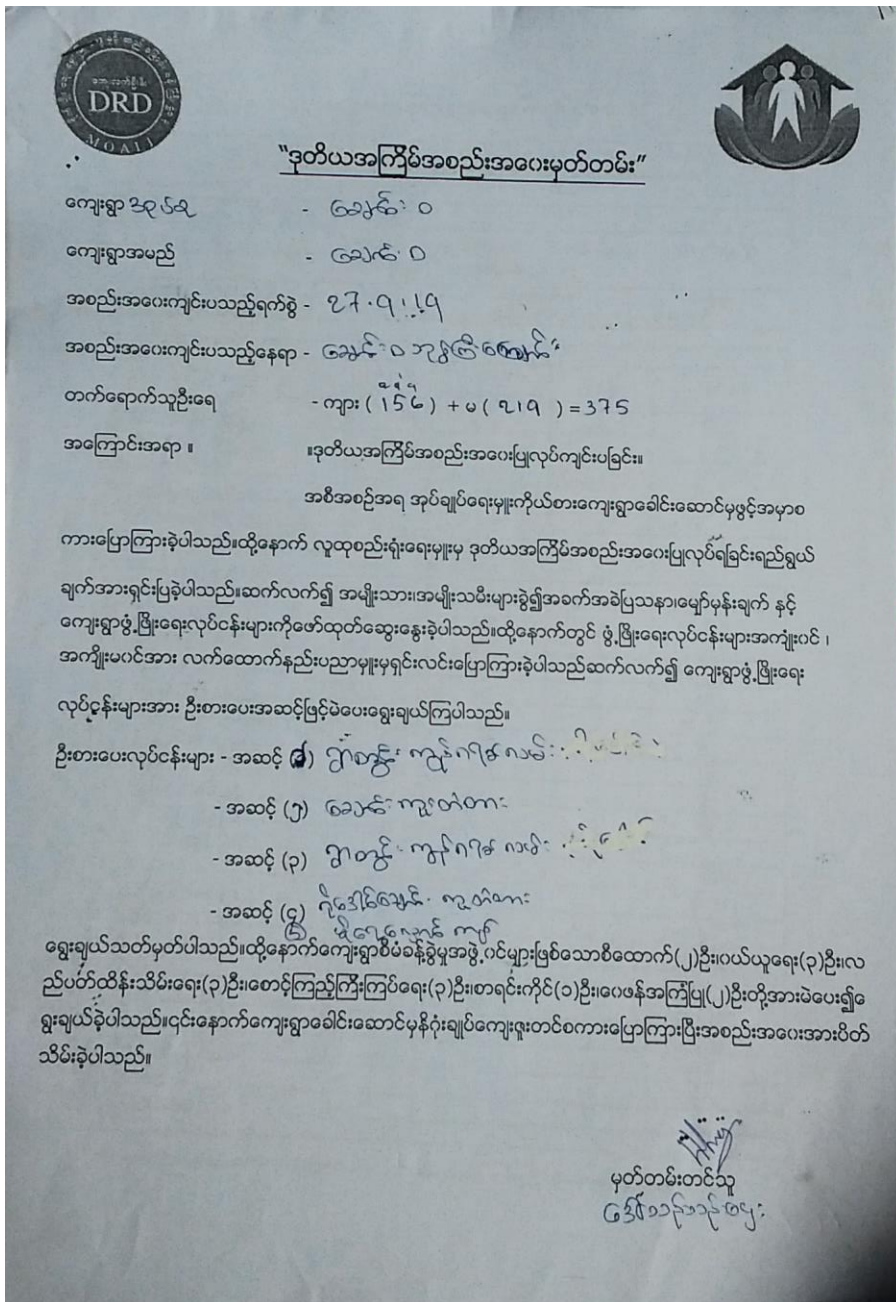 DRD
MOALI
"ဒုတိယအကြိမ်အစည်းအဝေးမှတ်တမ်း"
ကျေးရွာအုပ်စု - ချောင်းဝ
ကျေးရွာအမည် - ချောင်းဝ
အစည်းအဝေးကျင်းပသည့်ရက်စွဲ -
အစည်းအဝေးကျင်းပသည့်နေရာ - ချောင်းဝ ဘုန်းကြီးကျောင်း
တက်ရောက်သူဦးရေ - ကျား ( 156 ) + မ ( 219 ) = 375
အကြောင်းအရာ ။ ။ဒုတိယအကြိမ်အစည်းအဝေးပြုလုပ်ကျင်းပခြင်း။
အစီအစဉ်အရ အုပ်ချုပ်ရေးမှူးကိုယ်စားကျေးရွာခေါင်းဆောင်မှဖွင့်အမှာစ
ကားပြောကြားခဲ့ပါသည်။ထို့နောက် လူထုစည်းရုံးရေးမှူးမှ ဒုတိယအကြိမ်အစည်းအဝေးပြုလုပ်ရခြင်းရည်ရွယ်
ချက်အားရှင်းပြခဲ့ပါသည်။ဆက်လက်၍ အမျိုးသား၊အမျိုးသမီးများခွဲ၍အခက်အခဲပြဿနာ၊မျှော်မှန်းချက် နှင့်
ကျေးရွာဖွံ့ဖြိုးရေးလုပ်ငန်းများကိုဖော်ထုတ်ဆွေးနွေးခဲ့ပါသည်။ထို့နောက်တွင် ဖွံ့ဖြိုးရေးလုပ်ငန်းများအကျုံးဝင် ၊
အကျိုးမဝင်အား လက်ထောက်နည်းပညာမှူးမှရှင်းလင်းပြောကြားခဲ့ပါသည်ဆက်လက်၍ ကျေးရွာဖွံ့ဖြိုးရေး
လုပ်ငန်းများအား ဦးစားပေးအဆင့်ဖြင့်မဲပေးရွေးချယ်ကြပါသည်။
ဦးစားပေးလုပ်ငန်းများ - အဆင့် (၁) ရွာတွင်း ကွန်ကရစ်လမ်း
- အဆင့် (၂) ချောင်းကူးတံတား
- အဆင့် (၃) ရွာတွင်း ကွန်ကရစ်လမ်း
- အဆင့် (၄) ကူးတံတား
ရွေးချယ်သတ်မှတ်ပါသည်။ထို့နောက်ကျေးရွာစီမံခန့်ခွဲမှုအဖွဲ့ဝင်များဖြစ်သောစိထောက်(၂)ဦး၊ဝယ်ယူရေး(၃)ဦး၊လ
ည်ပတ်ထိန်းသိမ်းရေး(၃)ဦး၊စောင့်ကြည့်ကြီးကြပ်ရေး(၃)ဦး၊စာရင်းကိုင်(၁)ဦး၊ဝေဖန်အကြံပြု(၂)ဦးတို့အားမဲပေး၍ေ
ရွးချယ်ခဲ့ပါသည်။၎င်းနောက်ကျေးရွာခေါင်းဆောင်မှနိဂုံးချုပ်ကျေးဇူးတင်စကားပြောကြားပြီးအစည်းအဝေးအားပိတ်
သိမ်းခဲ့ပါသည်။
မှတ်တမ်းတင်သူ